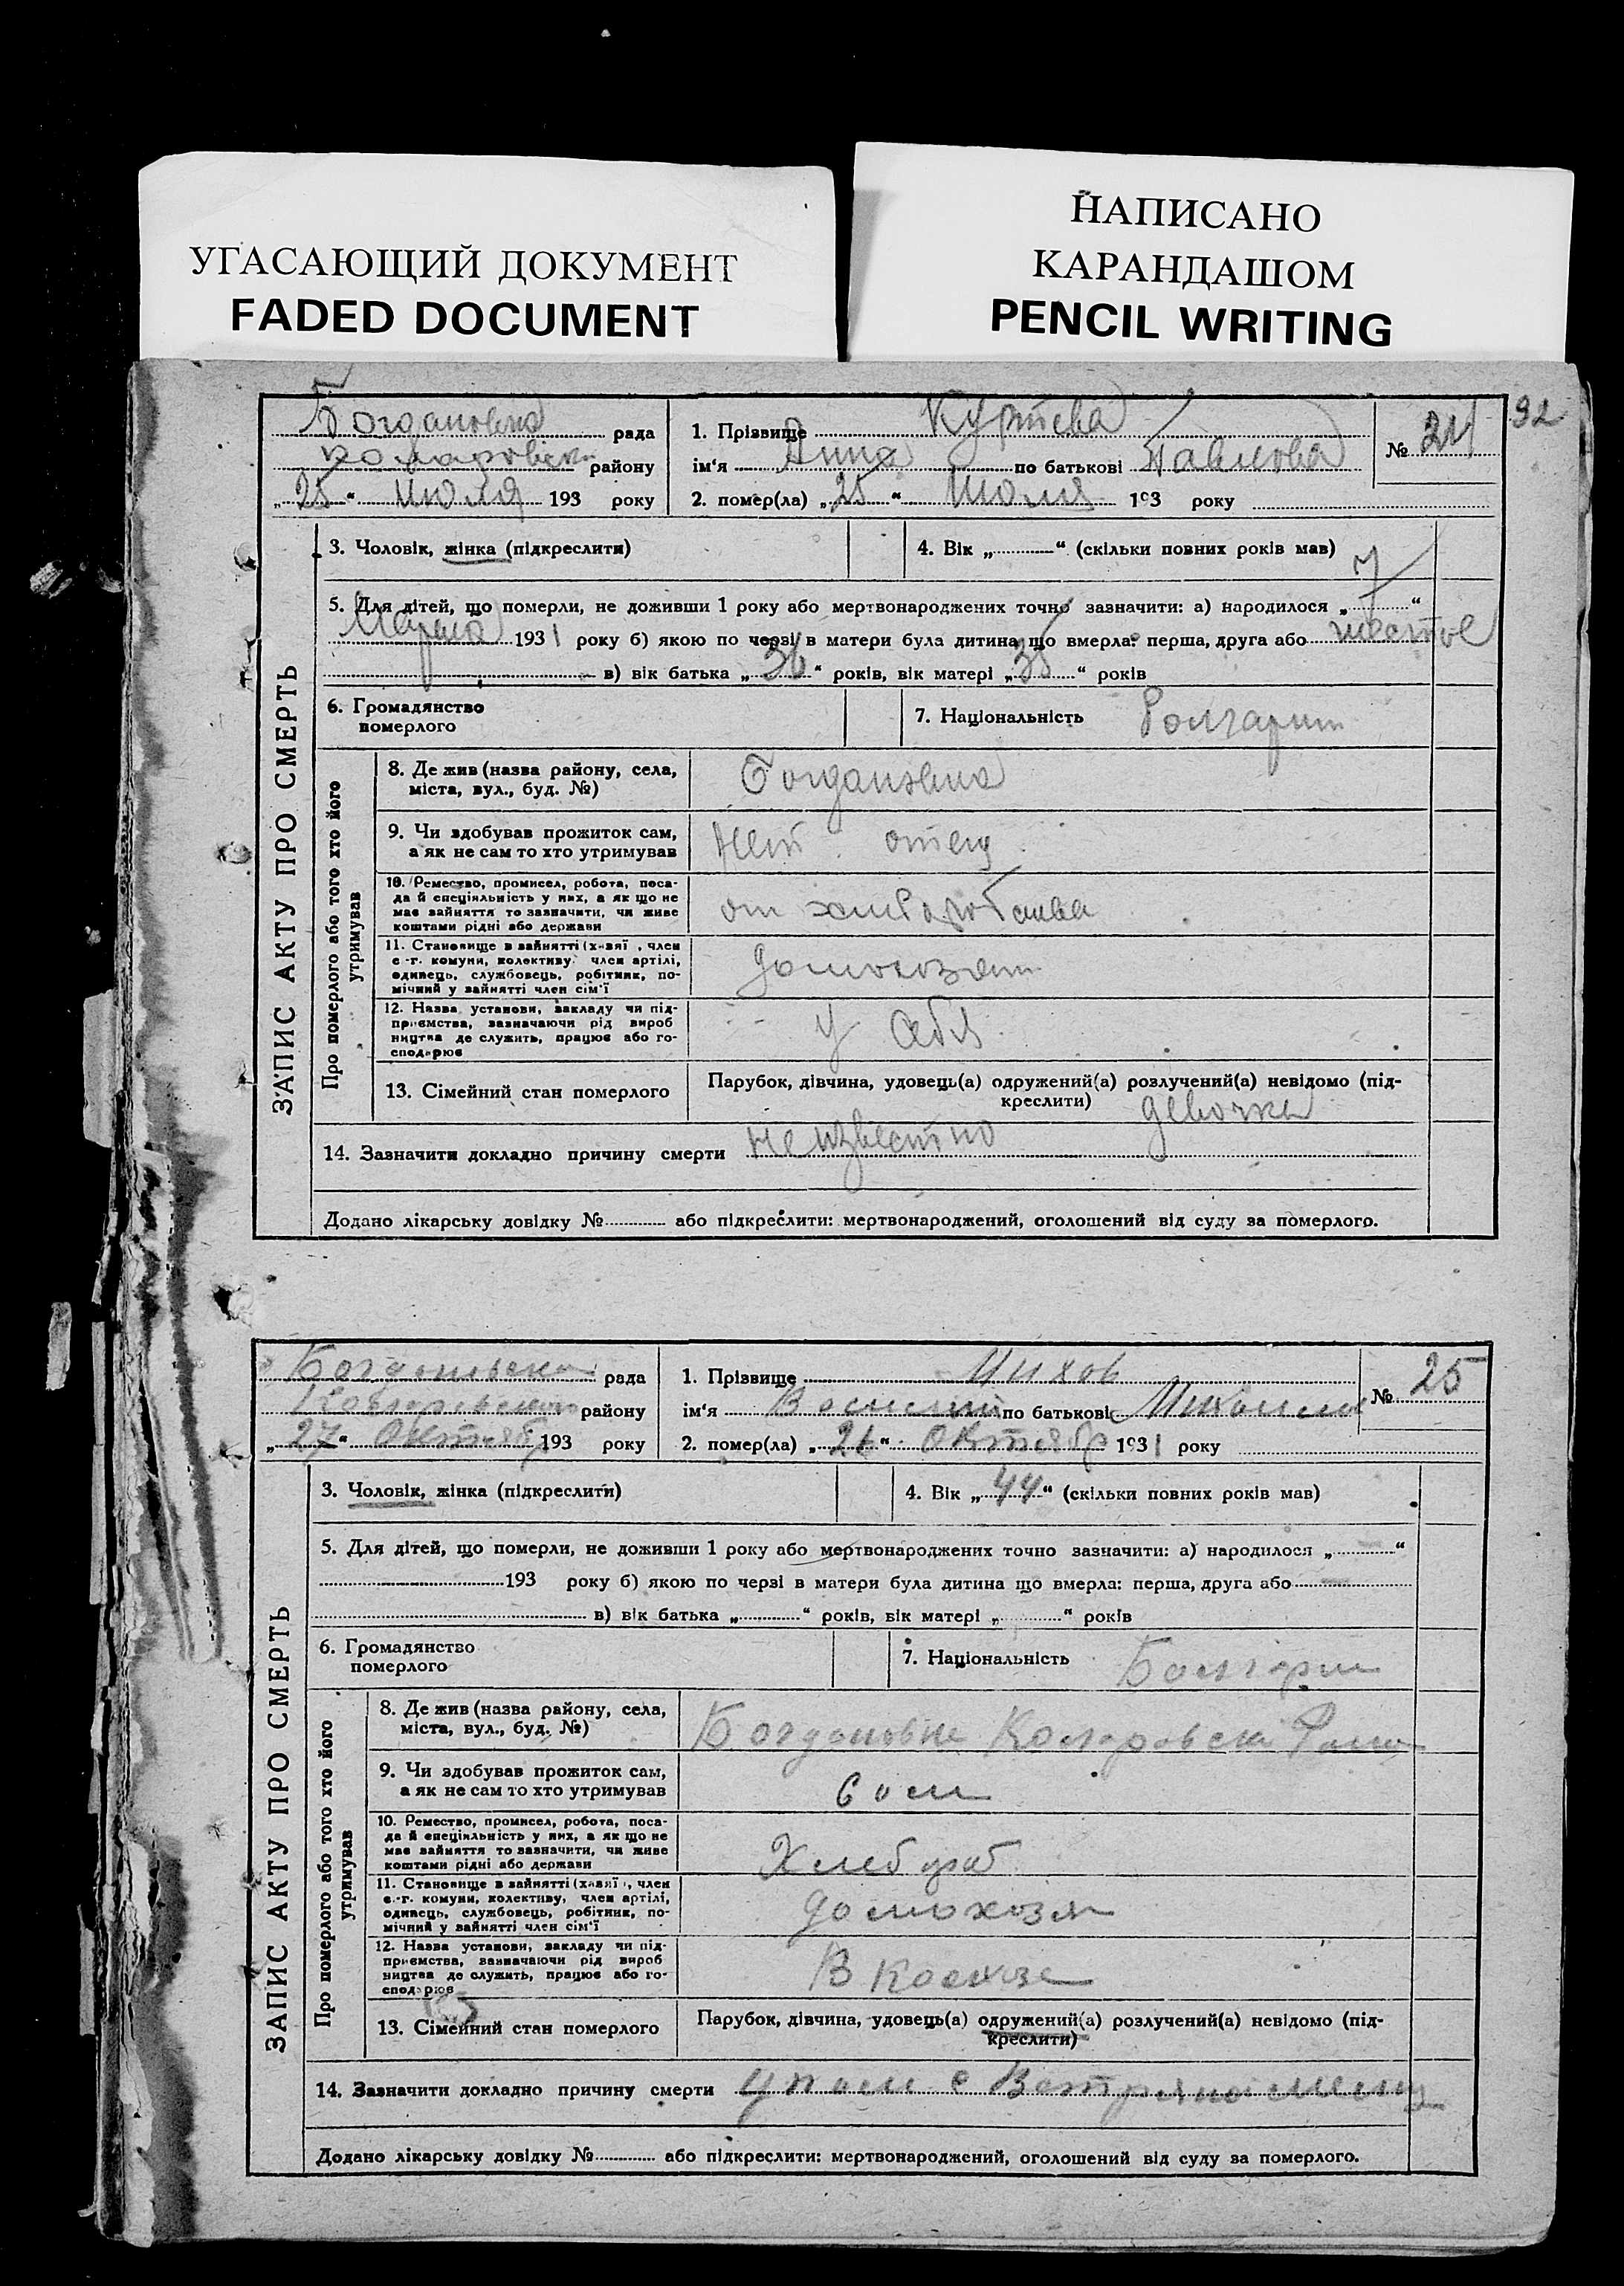 УГАСАЮЩИЙ ДОКУМЕНТ
FADED DOCUMENT
НАПИСАНО
КАРАНДАШОМ
PENCIL WRITING
32
ЗАПИС АКТУ ПРО СМЕРТЬ
Богдановка рада
району
„25“ июля 193 року
1. Прізвище Куртева
ім‘я Анна по батькові Павлова
2. помер(ла) „25“ Июля 193 року
№ 24
3. Чоловік, жінка (підкреслити)
4. Вік „ “ (скільки повних років мав)
5. Для дітей, що померли, не доживши 1 року або мертвонароджених точно зазначити: а) народилося „7“
Марта 1931 року б) якою по черзі в матери була дитина що вмерла: перша, друга або шестое
в) вік батька „36“ років, вік матері „35“ років
6. Громадянство
померлого
7. Національність Болгарин
Про померлого або того хто його
утримував
8. Де жив (назва району, села,
міста, вул., буд. №)
Богдановка
9. Чи здобував прожиток сам,
а як не сам то хто утримував
Нет отец
10. Ремество, промисел, робота, поса-
да й спеціяльність у них, а як що не
має зайняття то зазначити, чи живе
коштами рідні або держави
от хлебопобства
11. Становище в зайнятті (хазяї, член
с.-г. комуни, колективу, член артілі,
одинець, службовець, робітник, по-
мічний у зайнятті член сім‘ї
домохозяин
12. Назва установи, закладу чи під-
приємства, зазначаючи рід вироб
ництва де служить, працює або го-
сподарює
у себя
13. Сімейний стан померлого
Парубок, дівчина, удовець(а) одружений(а) розлучений(а) невідомо (під-
креслити) девочка
14. Зазначити докладно причину смерти неизвестно
Додано лікарську довідку № або підкреслити: мертвонароджений, оголошений від суду за померлого.
ЗАПИС АКТУ ПРО СМЕРТЬ
Богдановска рада
району
„27“ Октяб 193 року
1. Прізвище
ім‘я Василий по батькові
2. помер(ла) „26“ Октябр 1931 року
№ 25
3. Чоловік, жінка (підкреслити)
4. Вік „44“ (скільки повних років мав)
5. Для дітей, що померли, не доживши 1 року або мертвонароджених точно зазначити: а) народилося „ “
193 року б) якою по черзі в матери була дитина що вмерла: перша, друга або
в) вік батька „ “ років, вік матері „ “ років
6. Громадянство
померлого
7. Національність Болгарин
Про померлого або того хто його
утримував
8. Де жив (назва району, села,
міста, вул., буд. №)
Богдановке
9. Чи здобував прожиток сам,
а як не сам то хто утримував
Сам
10. Ремество, промисел, робота, поса-
да й спеціяльність у них, а як що не
має зайняття то зазначити, чи живе
коштами рідні або держави
Хлебораб
11. Становище в зайнятті (хазяї, член
с.-г. комуни, колективу, член артілі,
одинець, службовець, робітник, по-
мічний у зайнятті член сім‘ї
домохозя
12. Назва установи, закладу чи під-
приємства, зазначаючи рід вироб
ництва де служить, працює або го-
сподарює
В
13. Сімейний стан померлого
Парубок, дівчина, удовець(а) одружений(а) розлучений(а) невідомо (під-
креслити)
14. Зазначити докладно причину смерти упал с
Додано лікарську довідку № або підкреслити: мертвонароджений, оголошений від суду за померлого.